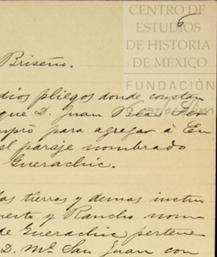 CENTRO DE
ESTUDIOS
DE HISTORIA
DE MÉXICO
FUNDACIÓN
6
Briseño.
dios pliegos donde constan
que D. Juan
para agregar á
el paraje nombrado
Guerachic.
las tierras y demas instru
y Rancho nom
de Guerachic pertene
D. Ml. San Juan con